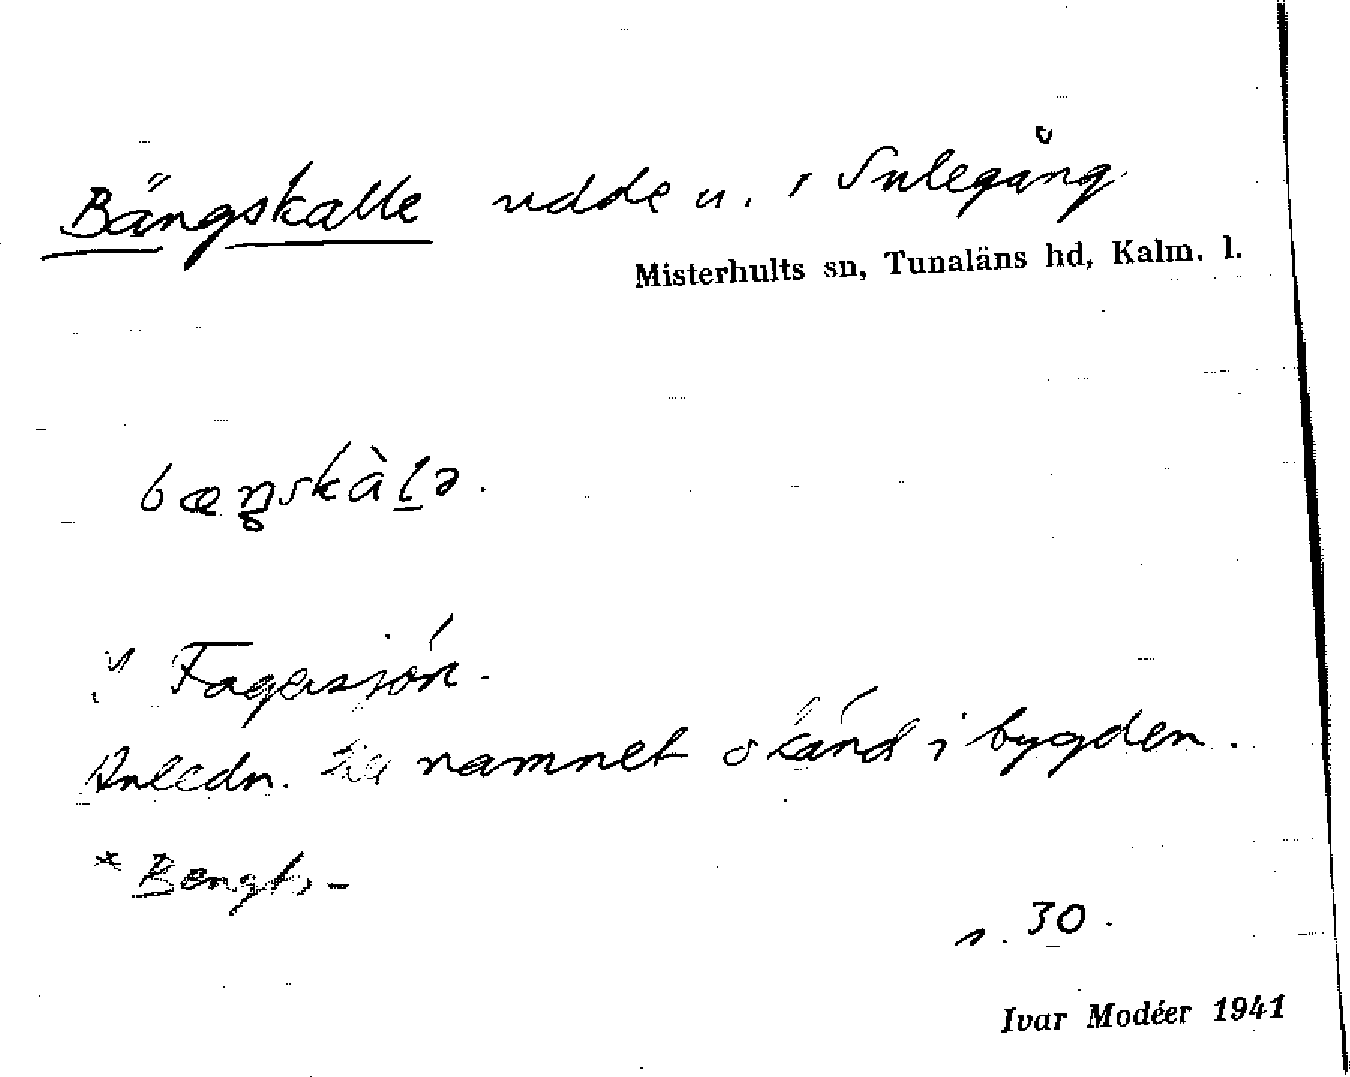 Bängskalle udde u. i Sulegång
Misterhults sn, Tunaläns hd, Kalm. l.
bæŋskàlə.
i Fagersjön.
Anledn. till namnet okänd i bygden.
* Bengts-
s. 30.
Ivar Modéer 1941